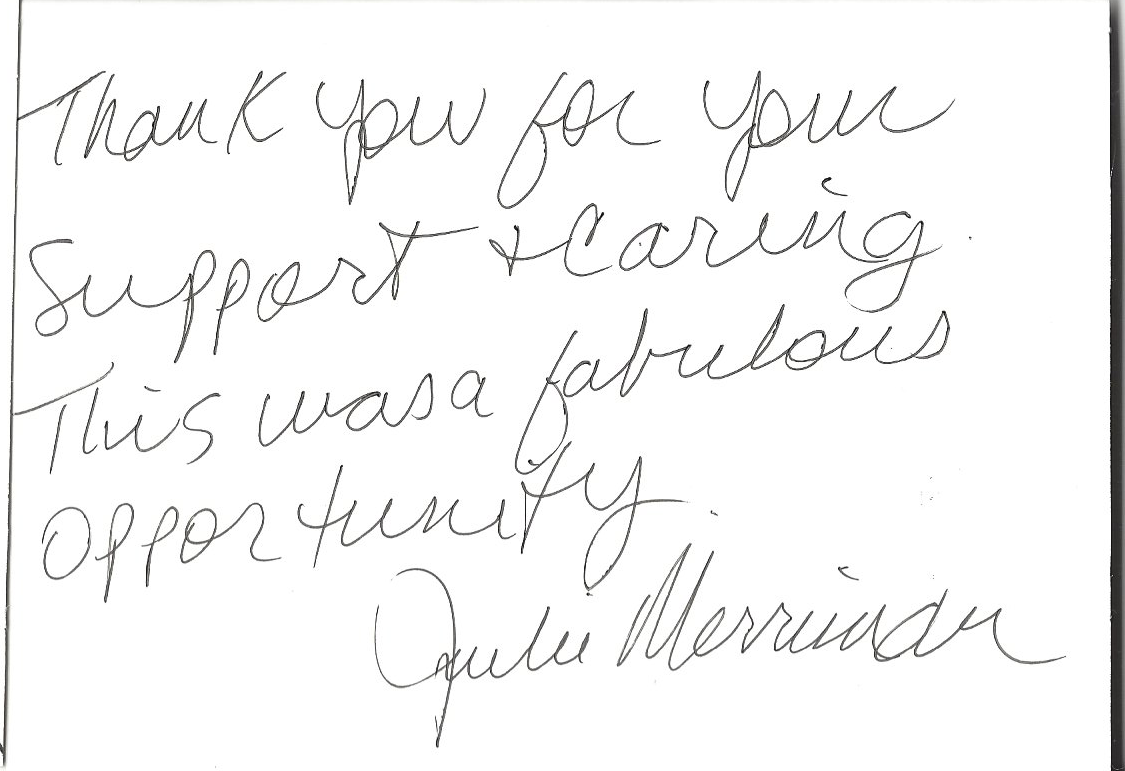 Thank you for your
Support + Caring.
This was a fabulous
opportunity
Julie